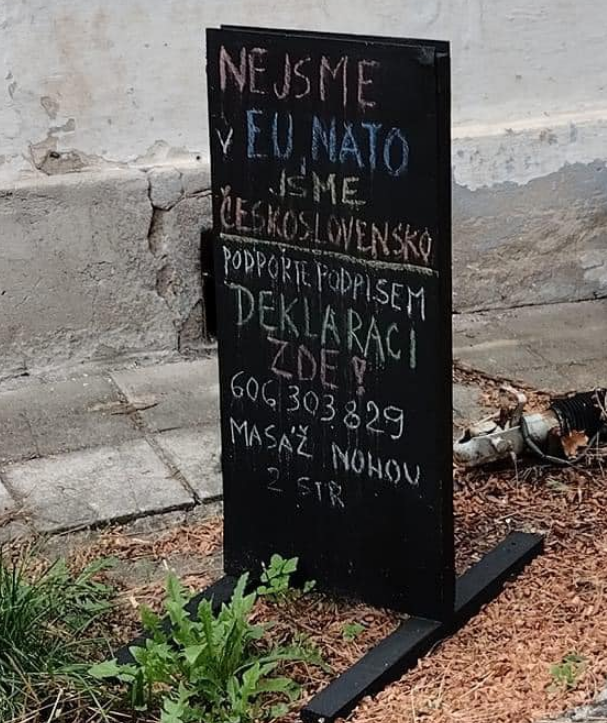 NEJSME
V EU, NATO
JSME
ČESKOSLOVENSKO
PODPOŘTE PODPISEM
DEKLARACI
ZDE!
606 303 829
MASÁŽ NOHOU
2 STR